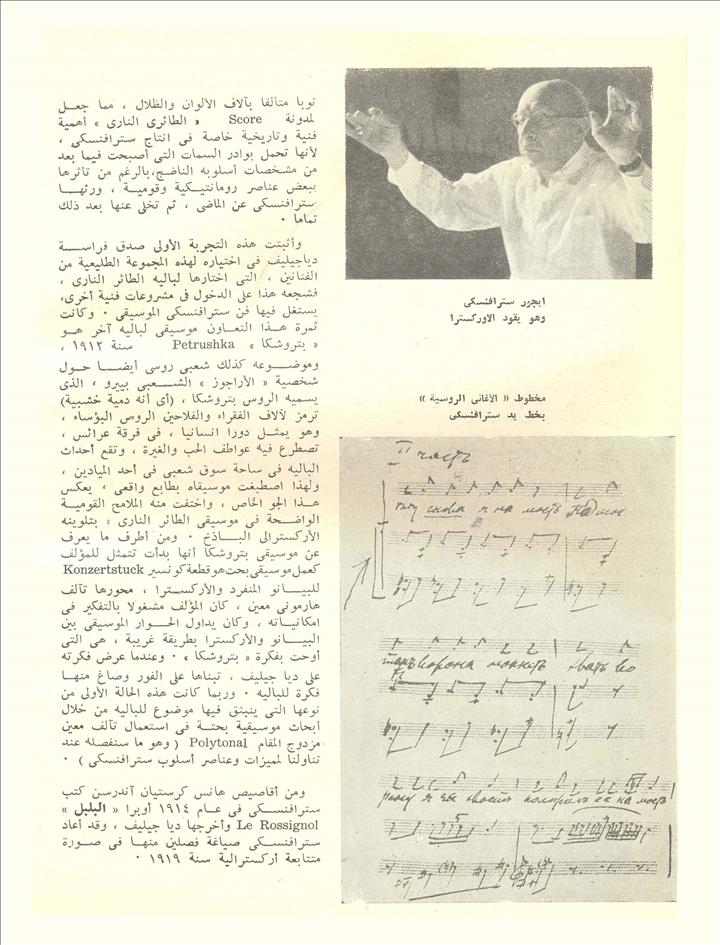 ثوبا متألقا بآلاف الألوان والظلال ، مما جعـل
لمدونة Score « الطائرى النارى » أهمية
فنية وتاريخية خاصة فى انتاج سترافنسكى ،
لأنها تحمل بوادر السمات التى أصبحت فيما بعد
من مشخصات أسلوبه الناضج،بالرغم من تأثرها
ببعض عناصر رومانتيـكية وقوميـة ، ورثهـا
سترافنسكى عن الماضى ، ثم تخلى عنها بعد ذلك
تماما ٠
وأثبتت هذه التجربة الأولى صدق فراسـة
دياجيليف فى اختياره لهذه المجموعة الطليعية من
الفنانين ، التى اختارها لباليه الطائر النارى ،
فشجعه هذا على الدخول فى مشروعات فنية أخرى،
يستغل فيها فن سترافنسكى الموسيقى ٠ وكانت
ثمرة هـذا التعـاون موسيقى لباليه آخر هـو
« بتروشكا » Petrushka سنة ١٩١٢ ،
وموضـوعه كذلك شعبى روسى أيضـا حـول
شخصية « الأراجوز » الشـعبى بييرو ، الذى
يسميه الروس بتروشكا ، (أى أنه دمية خشبية)
ترمز لآلاف الفقراء والفلاحين الروس البؤساء ،
وهو يمثـل دورا انسانيا ، فى فرقة عرائس ،
تصطرع فيه عواطف الحب والغيرة ، وتقع أحداث
الباليه فى ساحة سوق شعبى فى أحد الميادين ،
ولهذا اصطبغت موسيقاه بطابع واقعى ، يعكس
هـذا الجو الخاص ، واختفت منه الملامح القوميـة
الواضـحة فى موسيقى الطائر النارى ، بتلوينه
الأركسترالى البـاذخ ٠ ومن أطرف ما يعرف
عن موسيقى بتروشكا أنها بدأت تتمثل للمؤلف
كعمل موسيقى بحت هو قطعة كونسير Konzertstuck
للبيـانو المنفرد والأركسـترا ، محورها تآلف
هارمونى معين ، كان المؤلف مشغولا بالتفكير فى
امكانيـاته ، وكان يداول الحـوار الموسيقى بين
البيـانو والأركسترا بطريقة غريبة ، هى التى
أوحت بفكرة « بتروشكا » ٠ وعندما عرض فكرته
على ديا جيليف ، تبناها على الفور وصاغ منهـا
فكرة للباليه ٠ وربما كانت هذه الحالة الأولى من
نوعها التى ينبثق فيها موضوع للباليه من خلال
أبحاث موسيقية بحتـة فى استعمال تآلف معين
مزدوج المقام Polytonal ( وهو ما سنفصله عند
تناولنا لمميزات وعناصر أسلوب سترافنسكى ) ٠
ومن أقاصيص هانس كرستيان آندرسن كتب
سترافنسـكى فى عـام ١٩١٤ أوبرا « البلبل »
Le Rossignol وأخرجها ديا جيليف ، وقد أعاد
سترافنسـكى صياغة فصلين منهـا فى صـورة
متتابعة أركسترالية سنة ١٩١٩ ٠
ايجور سترافنسكى
وهو يقود الاوركسترا
مخطوط « الأغانى الروسية »
بخط يد سترافنسكى
II часть